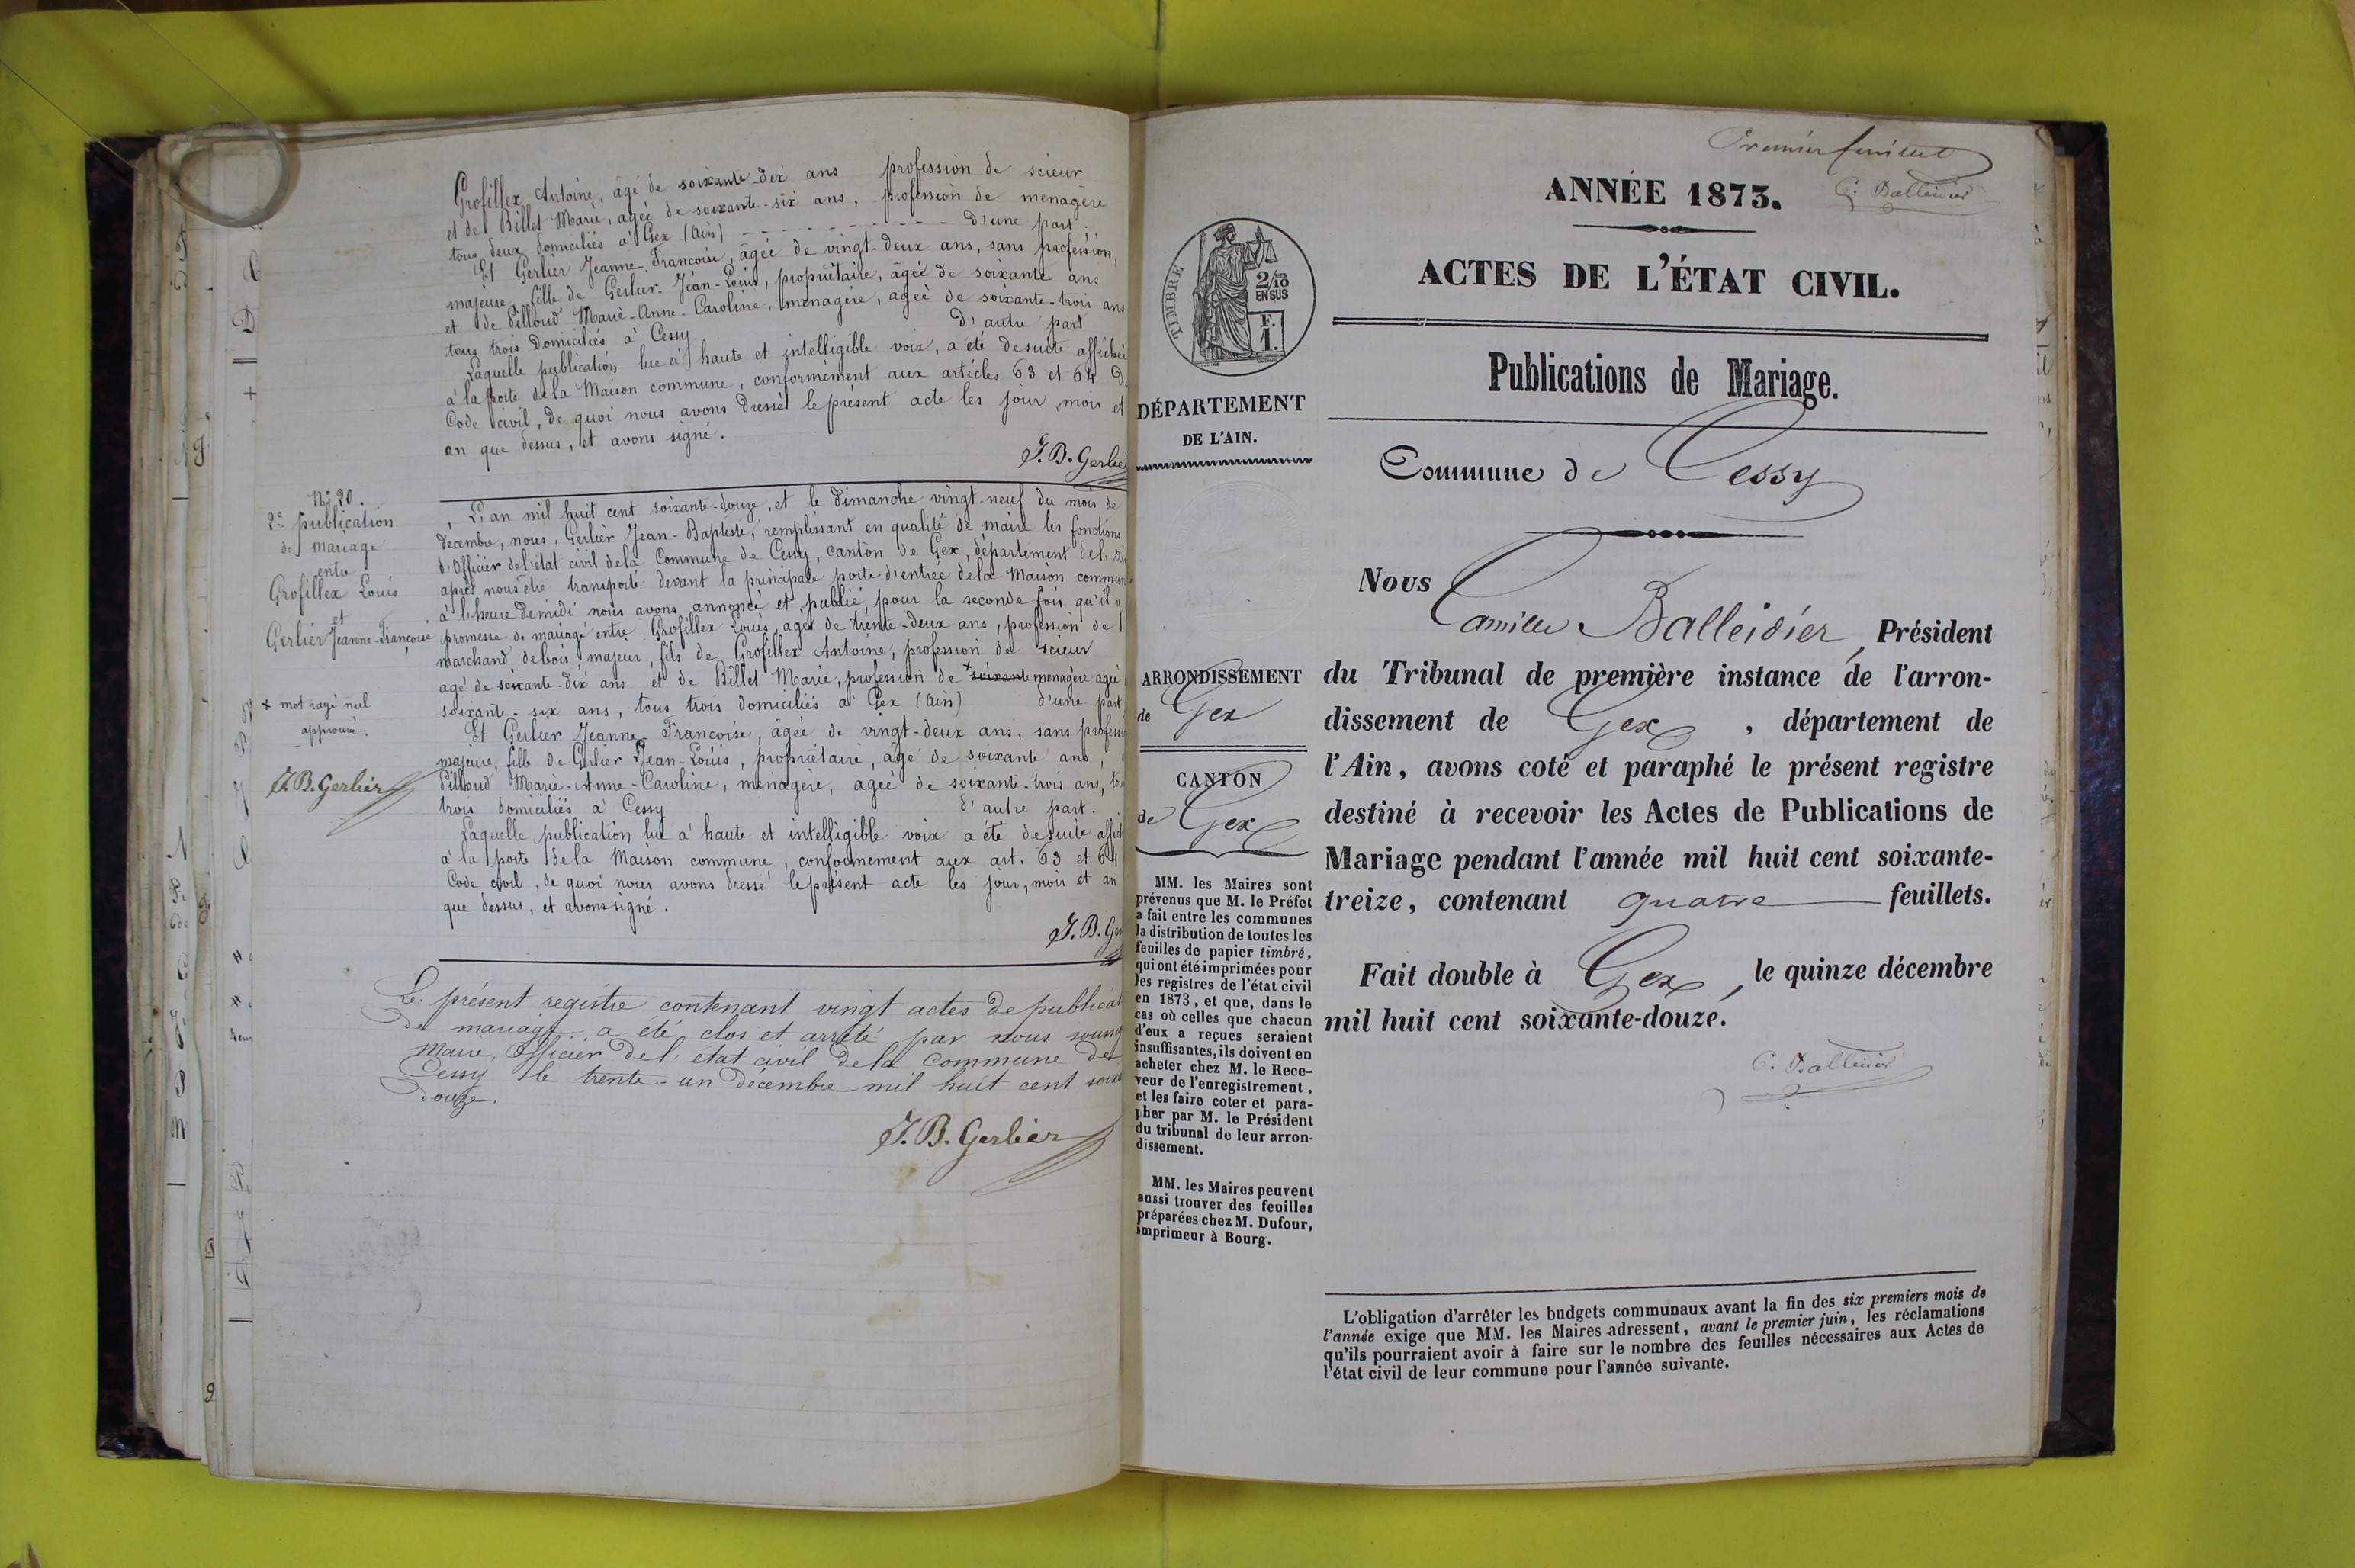 Grofillex Antoine, âgé de soixante-dix ans profession de scieur
et de Billet Marie, agée de soixante-six ans, profession de menagère
tous deux domiciliés à Gex (Ain) d'une part.
Et Gerlier Jeanne Françoise, âgée de vingt-deux ans, sans profession,
majeure, fille de Gerlier Jean-Louis, propriétaire, âgée de soixante ans
et de Pilloud Marie-Anne-Caroline, menagère, agée de soixante-trois ans
tous trois domiciliés à Cessy d'autre part
Laquelle publication lue à haute et intelligible voix, a été desuite affichée
à la porte dela Maison commune, conformement aux articles 63 et 64 d
Code civil, de quoi nous avons dressé le present acte les jour mois et
an que dessus, et avons signé.
J.B. Gerlie
N° 20.
2e publication
de mariage
entre
Grofillex Louis
et
Gerlier Jeanne-Françoise
x mot rayé nul
approuvé:
J.B. Gerlier
L'an mil huit cent soixante-douze, et le dimanche vingt-neuf du mois de
décembre, nous, Gerlier Jean-Baptiste, remplissant en qualité de maire les fonctions
d'Officier del'état civil dela Commune de Cessy, canton de Gex, département del'Ain
après nous être transporté devant la principale porte d'entrée dela Maison commune
à l'heure demidi nous avons annoncé et publié pour la seconde fois qu'il y
promesse de mariage entre Grofillex Louis, agé de trente-deux ans, profession de
marchand debois majeur, fils de Grofillex Antoine, profession de scieur
agé de soixante-dix ans et de Billet Marie, profession de x soixante menagère agée
soixante-six ans, tous trois domiciliés à Gex (Ain) d'une part
Et Gerlier Jeanne Françoise, âgée de vingt-deux ans, sans profess
majeure, fille de Gerlier Jean-Louis, propriétaire, âgé de soixante ans,
Pilloud Marie-Anne-Caroline, ménagère, agée de soixante-trois ans, to
trois domiciliés à Cessy d'autre part.
Laquelle publication lue à haute et intelligible voix a été desuite affich
à la porte dela Maison commune, conformement aux art. 63 et 64
Code civil, de quoi nous avons dressé le présent acte les jour, mois et an
que dessus, et avons signé.
J.B. Ger
Le présent registre contenant vingt actes de publicat
de mariage a été clos et arrêté par nous souss
Maire, Officier del'etat civil dela commune de
Cessy le trente-un décembre mil huit cent soixa
douze.
J.B. Gerlier
Premier feuillet
C. Balleidier
ANNÉE 1873.
ACTES DE L'ÉTAT CIVIL.
Publications de Mariage.
Commune de Cessy
TIMBRE
2/10
EN SUS
F.
1.
DÉPARTEMENT
DE L'AIN.
ARRONDISSEMENT
de Gex
CANTON
de Gex
MM. les Maires sont
prévenus que M. le Préfet
a fait entre les communes
la distribution de toutes les
feuilles de papier timbré,
qui ont été imprimées pour
les registres de l'état civil
en 1873, et que, dans le
cas où celles que chacun
d'eux a reçues seraient
insuffisantes, ils doivent en
acheter chez M. le Rece-
veur de l'enregistrement,
et les faire coter et para-
pher par M. le Président
du tribunal de leur arron-
dissement.
MM. les Maires peuvent
aussi trouver des feuilles
préparées chez M. Dufour,
imprimeur à Bourg.
Nous Camille Balleidier, Président
du Tribunal de première instance de l'arron-
dissement de Gex, département de
l'Ain, avons coté et paraphé le présent registre
destiné à recevoir les Actes de Publications de
Mariage pendant l'année mil huit cent soixante-
treize, contenant quatre feuillets.
Fait double à Gex, le quinze décembre
mil huit cent soixante-douze.
C. Balleidier
L'obligation d'arrêter les budgets communaux avant la fin des six premiers mois de
l'année exige que MM. les Maires adressent, avant le premier juin, les réclamations
qu'ils pourraient avoir à faire sur le nombre des feuilles nécessaires aux Actes de
l'état civil de leur commune pour l'année suivante.